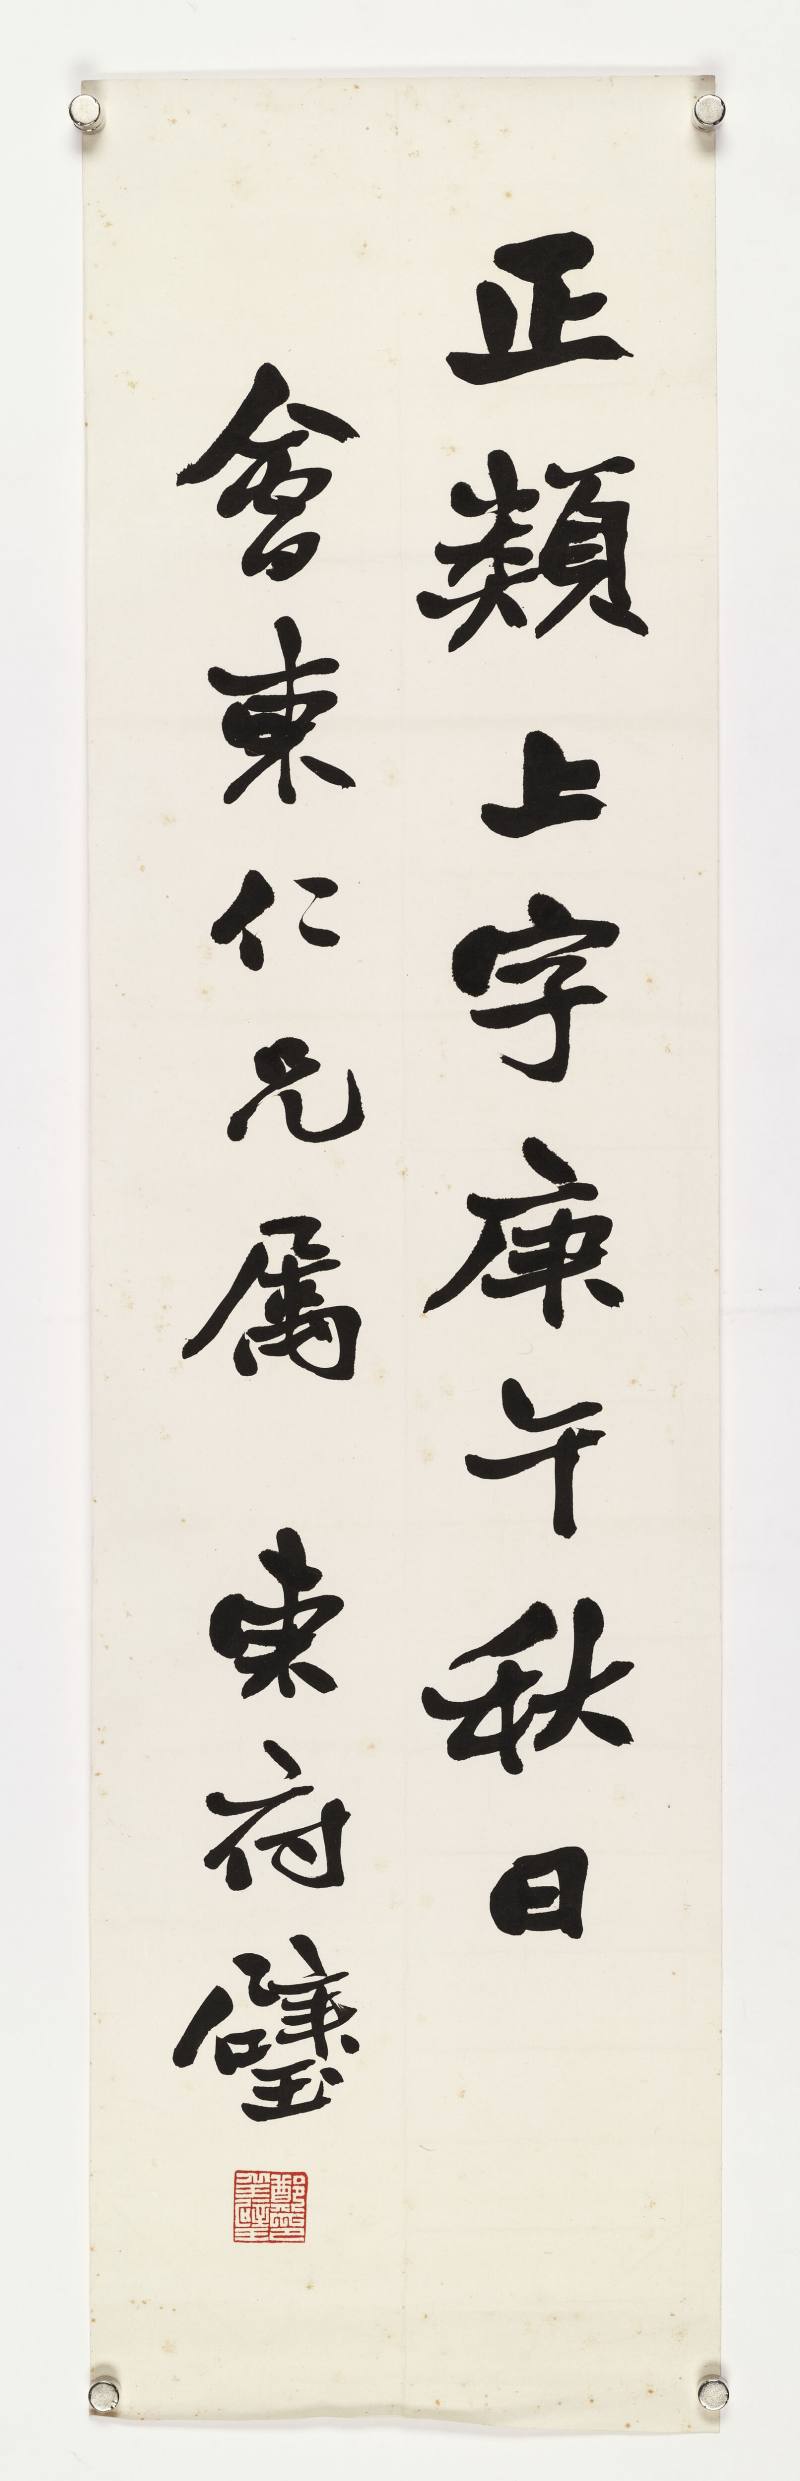 正類上字庚午秋日
會東仁兄屬 東府璧